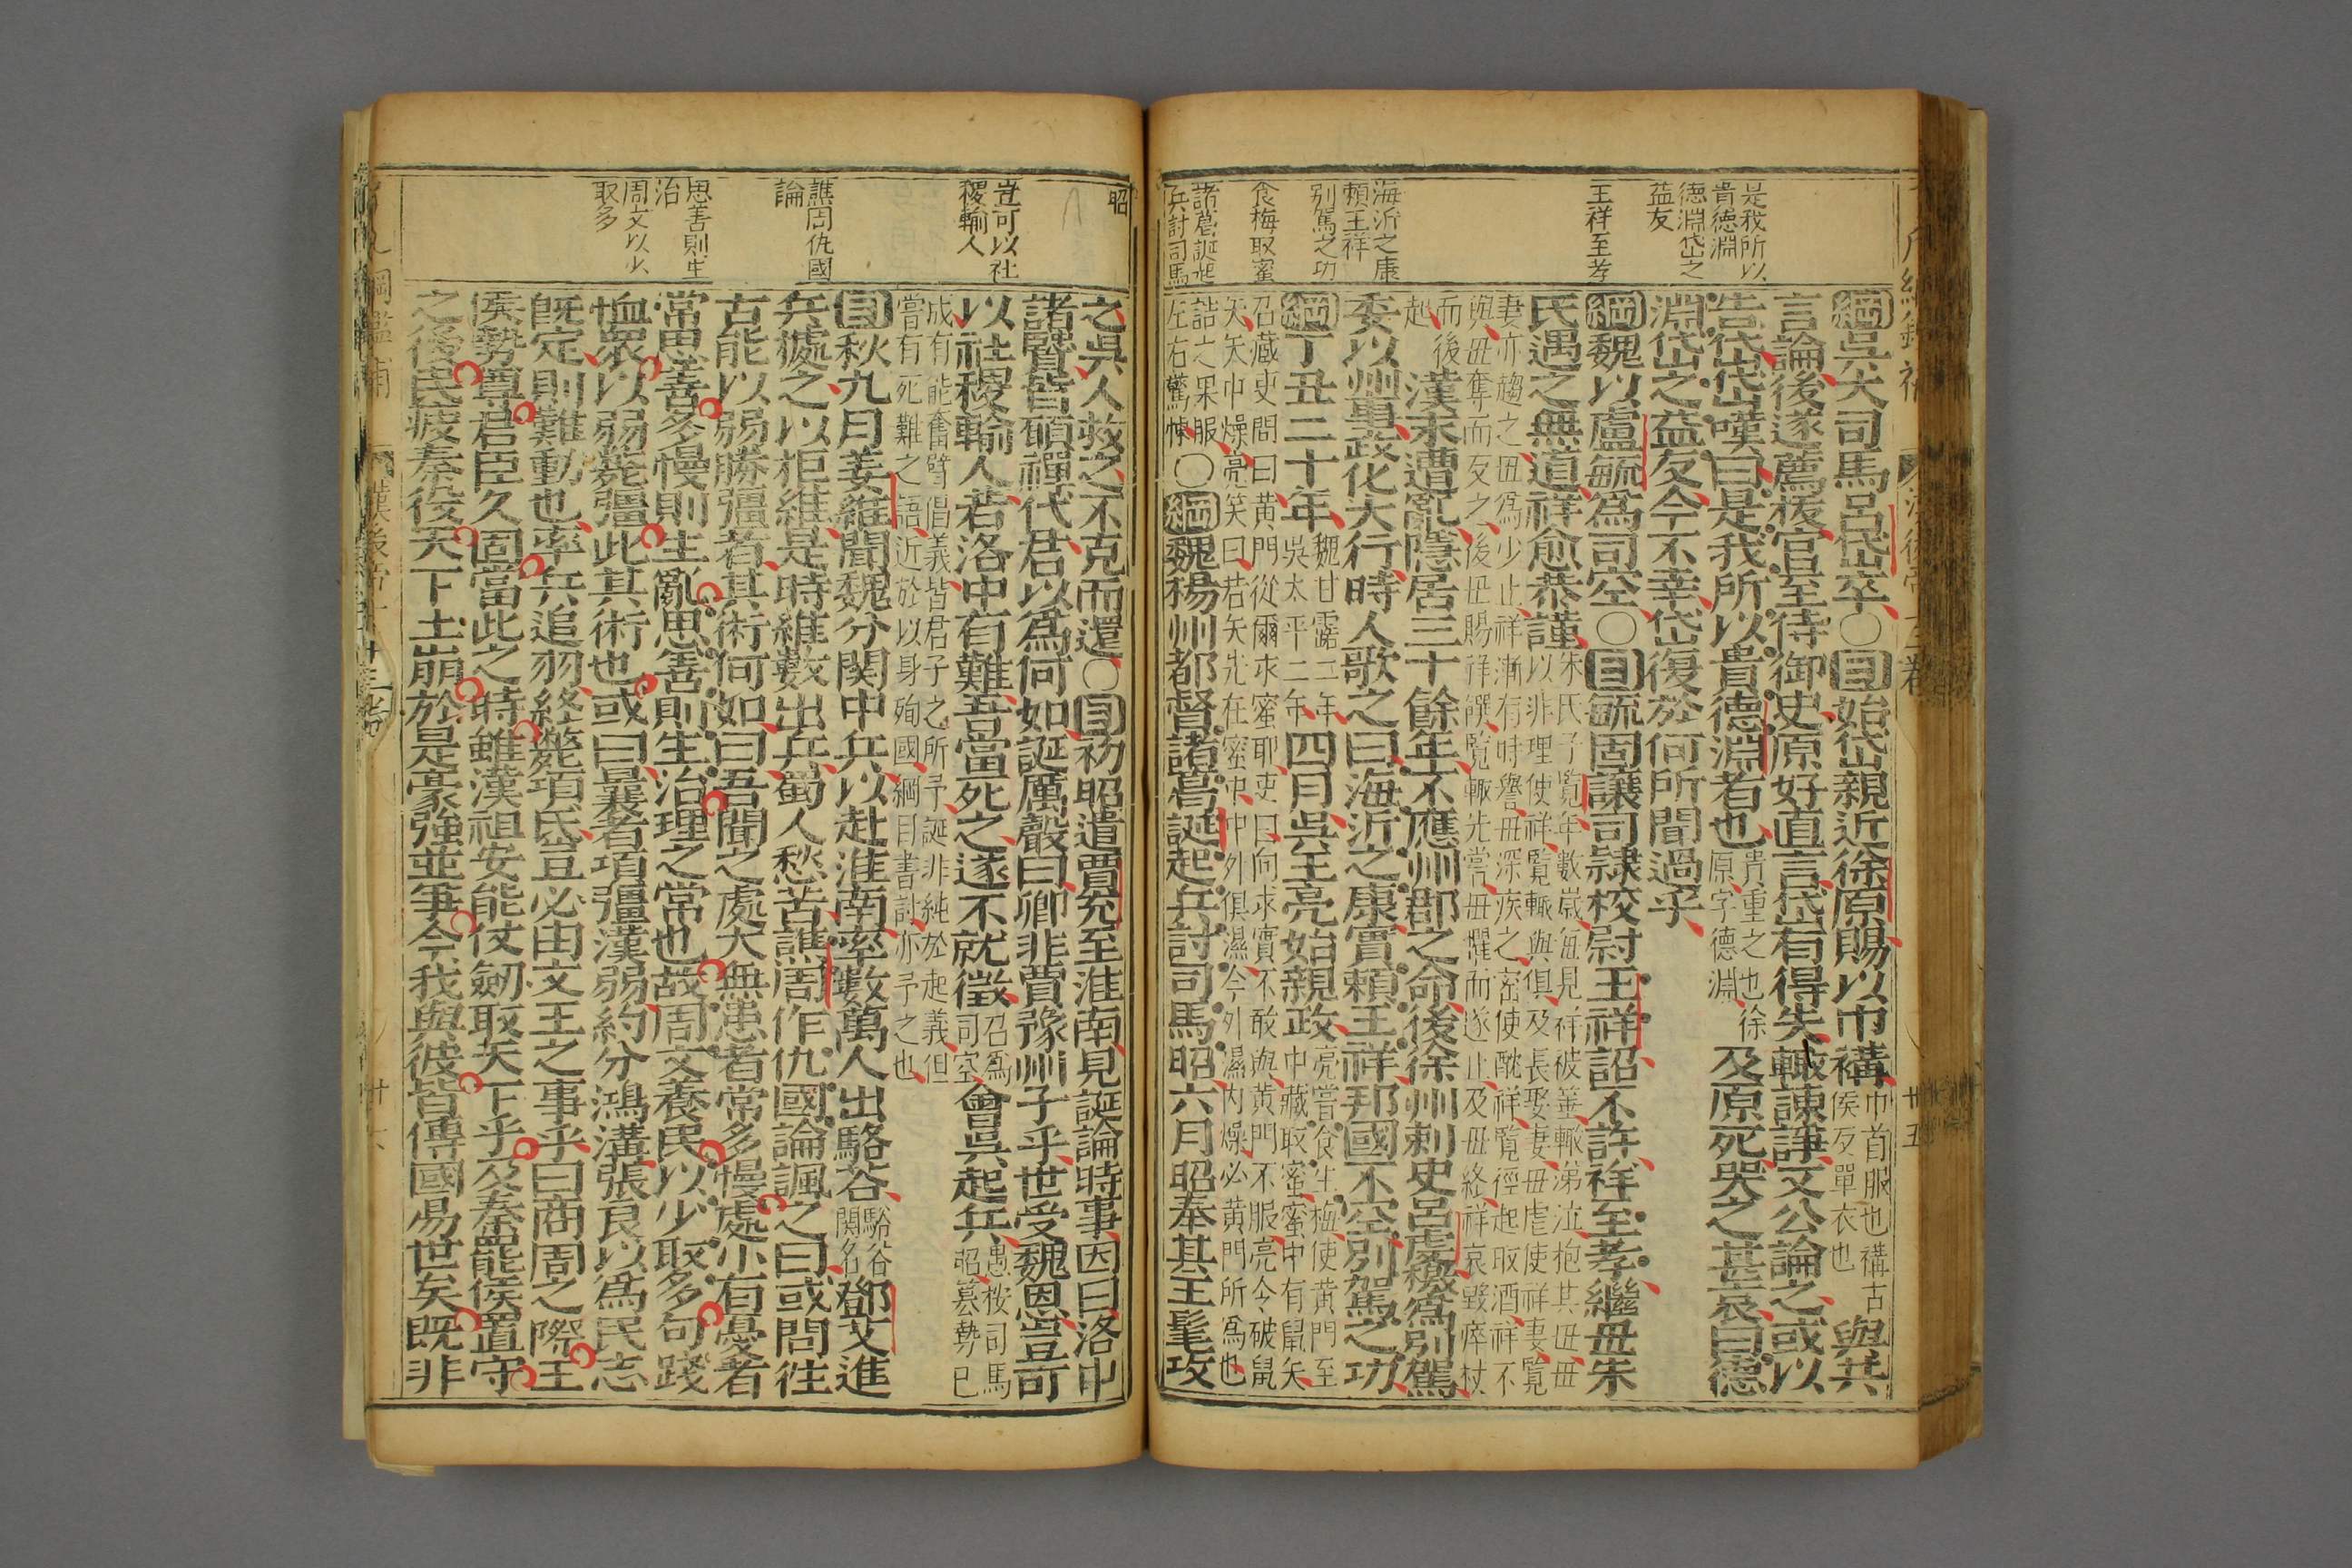 是我所以
貴德淵
德淵岱之
益友
王祥至孝
海沂之康
頼王祥
別駕之功
食梅取蜜
諸葛誕起
兵討司馬
綱吳大司馬呂岱卒○目始岱親近徐原賜以巾褠巾首服也褠古侯反單衣也與共
言論後遂薦拔官至侍御史原好直言岱有得失輙諫諍又公論之或以
告岱岱嘆曰是我所以貴德淵者也貴重之也徐原字德淵及原死哭之甚哀曰德
淵岱之益友今不幸岱復於何所聞過乎
綱魏以盧毓爲司空○目毓固讓司隷校尉王祥詔不許祥至孝繼毌朱
氏遇之無道祥愈恭謹朱氏子覽年數歲每見祥被箠輙涕泣抱其毌毌以非理使祥覽輙與俱及長娶妻毌虐使祥妻覽
妻亦趨之毌爲少止祥漸有時譽毌深疾之密使酖祥覽徑起取酒祥不與毌奪而反之後毌賜祥饌覽輙先嘗毌懼而遂止及毌終祥哀毀瘁杖
而後起漢末遭亂隱居三十餘年不應州郡之命後徐州刺史呂虔檄爲別駕
委以州事政化大行時人歌之曰海沂之康實頼王祥邦國不空別駕之功
綱丁丑二十年魏甘露二年吳太平二年四月吳王亮始親政亮嘗食生梅使黄門至中藏取蜜蜜中有鼠矢
召藏吏問曰黄門從爾求蜜耶吏曰向求實不敢與黄門不服亮令破鼠矢矢中燥亮笑曰若矢先在蜜中中外俱濕今外濕内燥必黄門所爲也
詰之果服左右驚悚○綱魏楊州都督諸葛誕起兵討司馬昭六月昭奉其王髦攻
昭
豈可以社
稷輸人
譙周仇國
論
思善則生
治
周文以少
取多
之吳人救之不克而還○目初昭遣賈充至淮南見誕論時事因曰洛中
諸賢皆願禪代君以爲何如誕厲聲曰卿非賈豫州子乎世受魏恩豈可
以社稷輸人若洛中有難吾當死之遂不就徵召爲司空會吳起兵愚按司馬昭簒勢已
成有能奮臂倡義皆君子之所予誕非純於起義但嘗有死難之語近於以身殉國綱目書討亦予之也
目秋九月姜維聞魏分関中兵以赴淮南率數萬人出駱谷駱谷関名鄧艾進
兵據之以拒維是時維數出兵蜀人愁苦譙周作仇國論諷之曰或問往
古能以弱勝彊者其術何如曰吾聞之處大無患者常多慢處小有憂者
常思善多慢則生亂思善則生治理之常也故周文養民以少取多句踐
恤衆以弱斃彊此其術也或曰曩者項彊漢弱約分鴻溝張良以爲民志
既定則難動也率兵追羽終斃項氏豈必由文王之事乎曰商周之際王
侯勢尊君臣久固當此之時雖漢祖安能仗劒取天下乎及秦罷侯置守
之後民疲秦役天下土崩於是豪強並爭今我與彼皆傳國易世矣既非